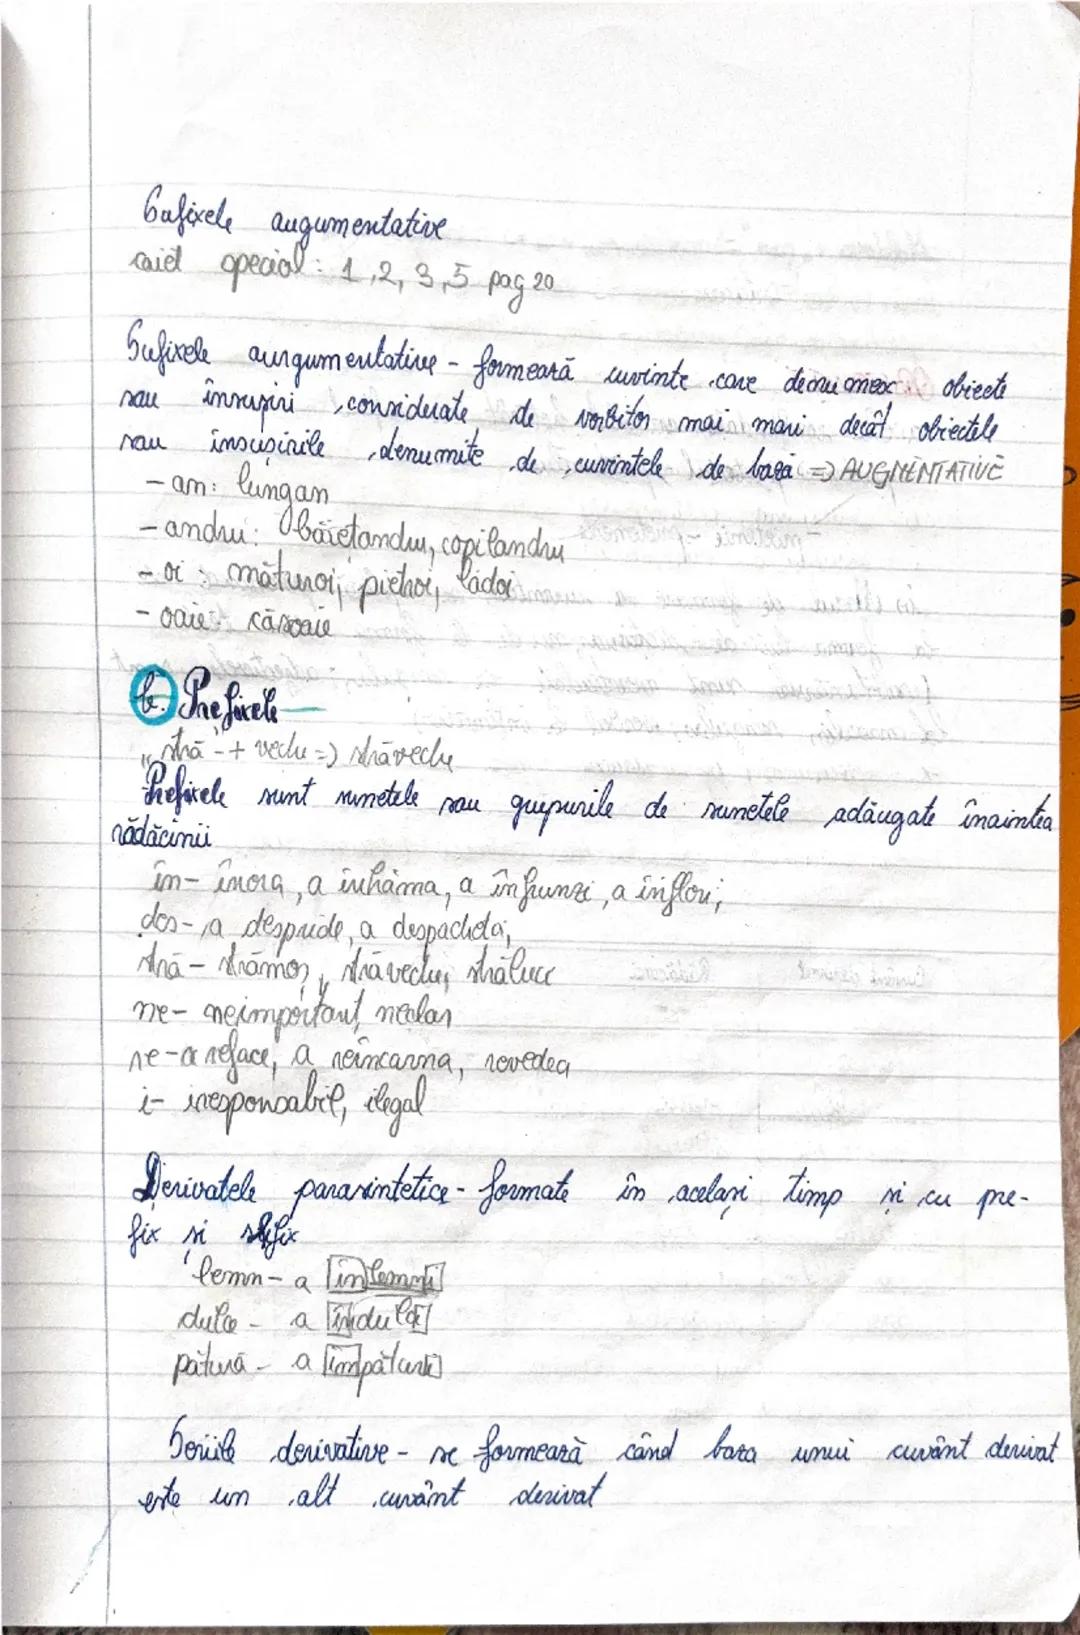 Sufixele augumentative
caiet special: 1, 2, 3, 5 pag 20
Sufixele aurgumentative - formează cuvinte care denumesc obiecte
sau însușiri, considerate de vorbitor mai mari decât obiectele
sau însușirile denumite de cuvintele de bază => AUGMENTATIVE
- an: lungan
- andru: băietandru, copilandru
- oi: măturoi, pietroi, lădoi
- oaie: căsoaie
b. Prefixele
"stră - + vechi => străvechi
Prefixele sunt sunetele sau grupurile de sunetele adăugate înaintea
rădăcinii
în- înora, a înhăma, a înfrunzi, a înflori;
des- a desprinde, a despacheta,
stră- strămoș, străvechi, străluci
ne- neimportant, neclar
re- a reface, a reîncarna, revedea
i- iresponsabil, ilegal
Derivatele parasintetice - formate în același timp și cu pre-
fix și sufix
lemn - a înlemni
dulce - a îndulci
pătură - a împături
Seriile derivative - se formează când baza unui cuvânt derivat
este un alt cuvânt derivat